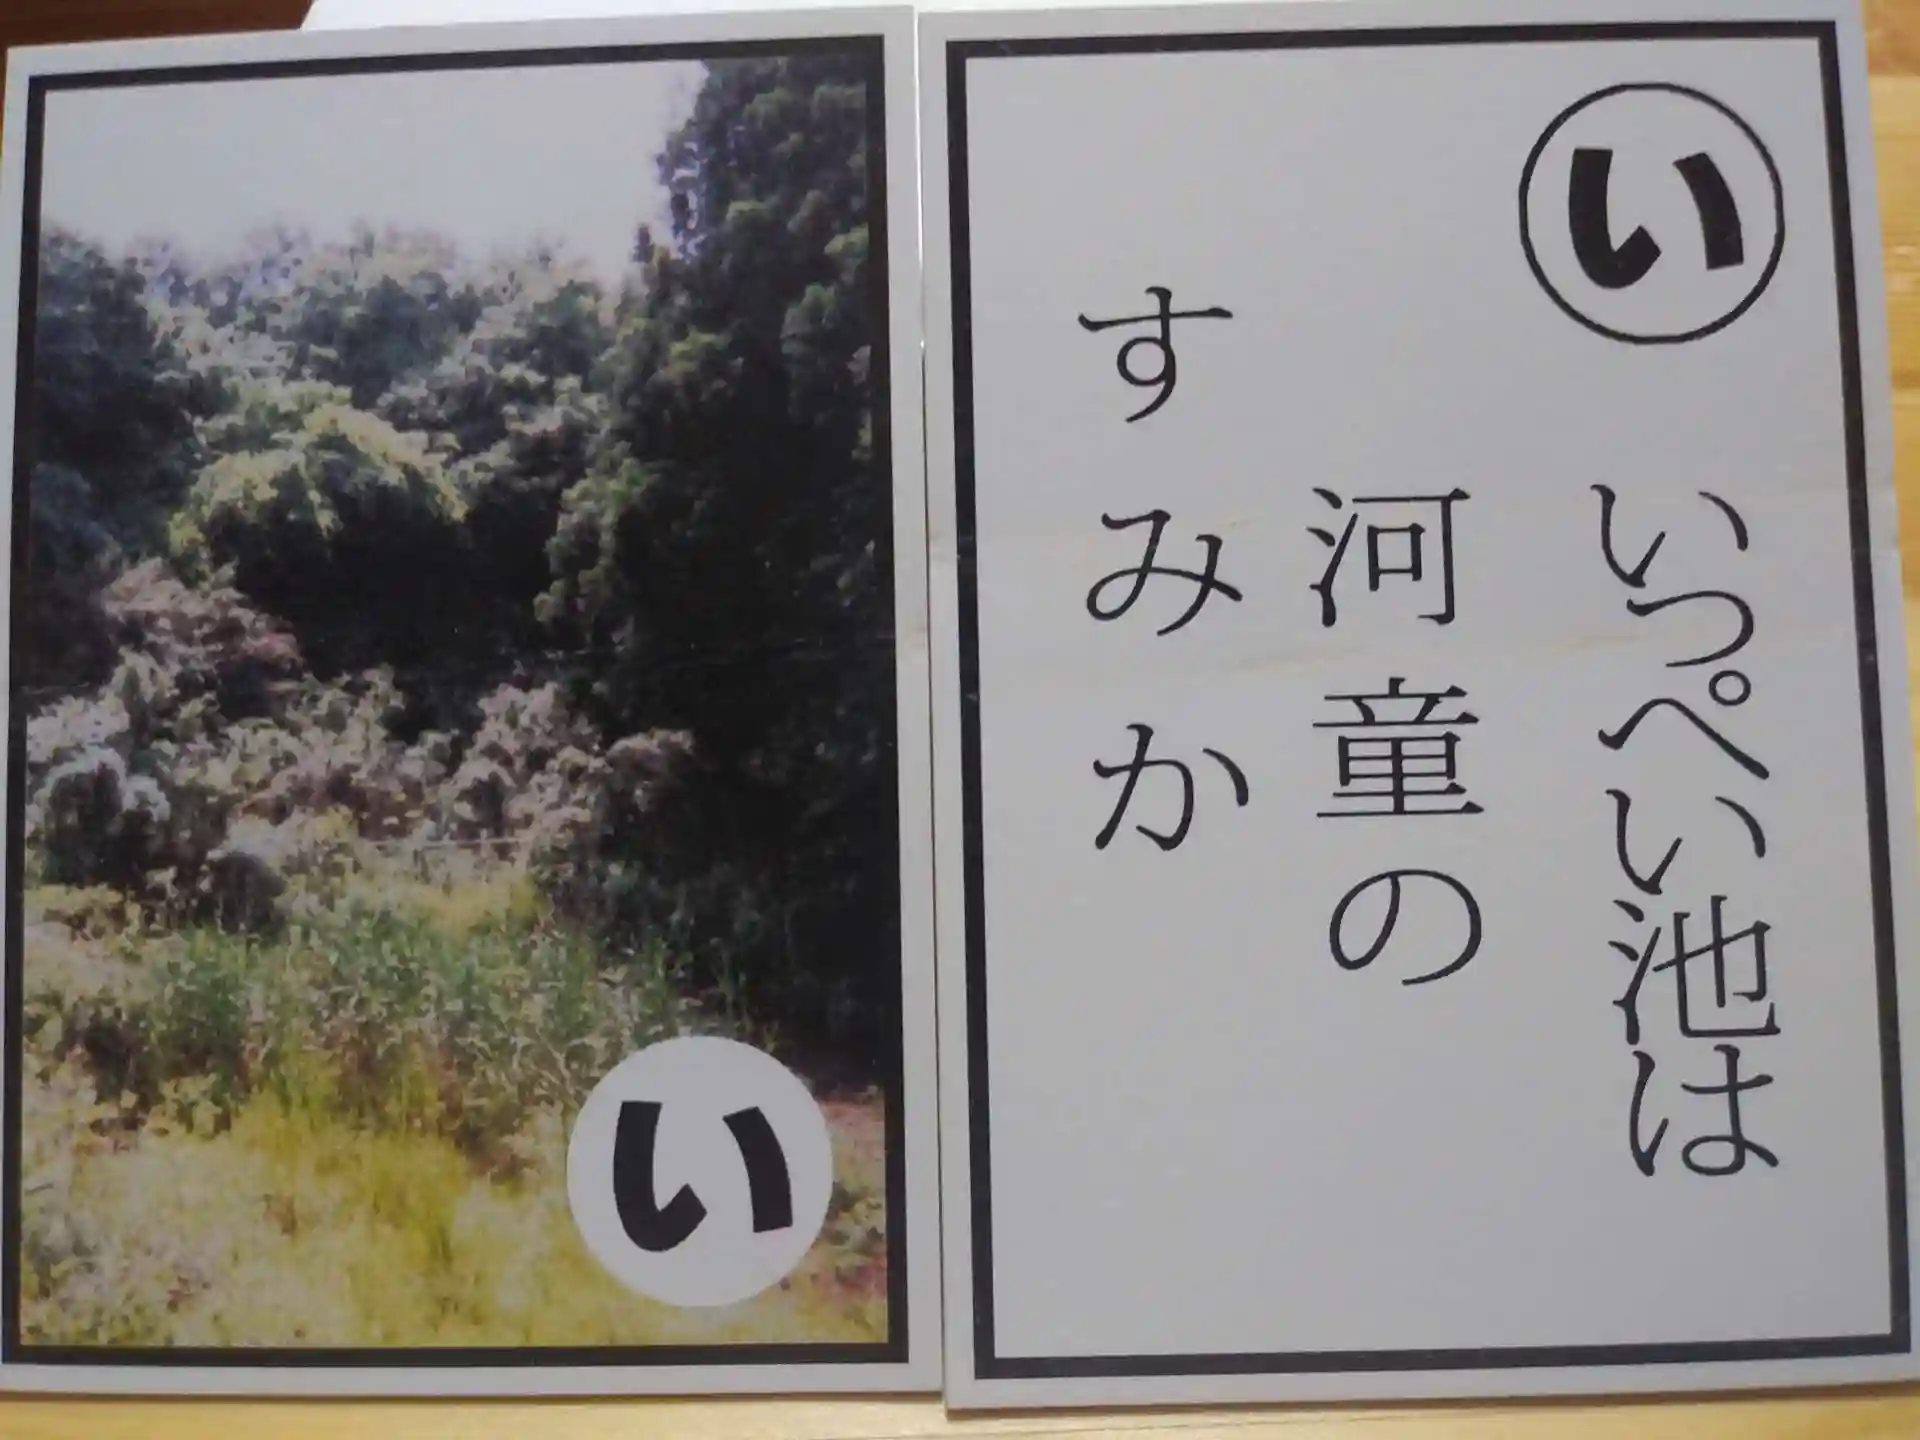 い
いっぺい池は
河童の
すみか
い